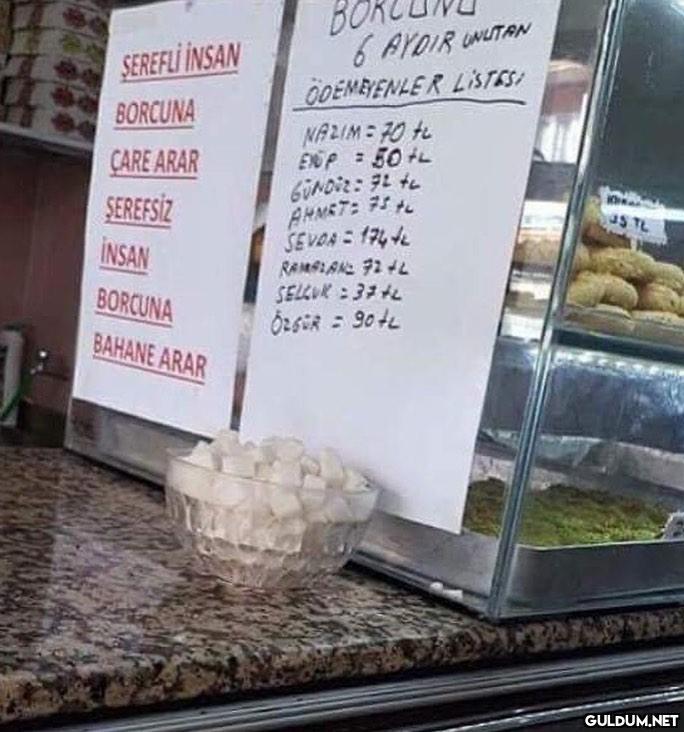 ŞEREFLİ İNSAN
BORCUNA
ÇARE ARAR
ŞEREFSİZ
İNSAN
BORCUNA
BAHANE ARAR
BORCUNU
6 AYDIR UNUTAN
ÖDEMEYENLER LİSTESİ
NAZIM = 70 tL
EYÜP = 50 tL
GÜNDÜZ = 72 tL
AHMET = 75 tL
SEVDA = 174 tL
RAMAZAN = 72 tL
SELÇUK = 37 tL
ÖZGÜR = 90 tL
35 TL
GULDUM.NET